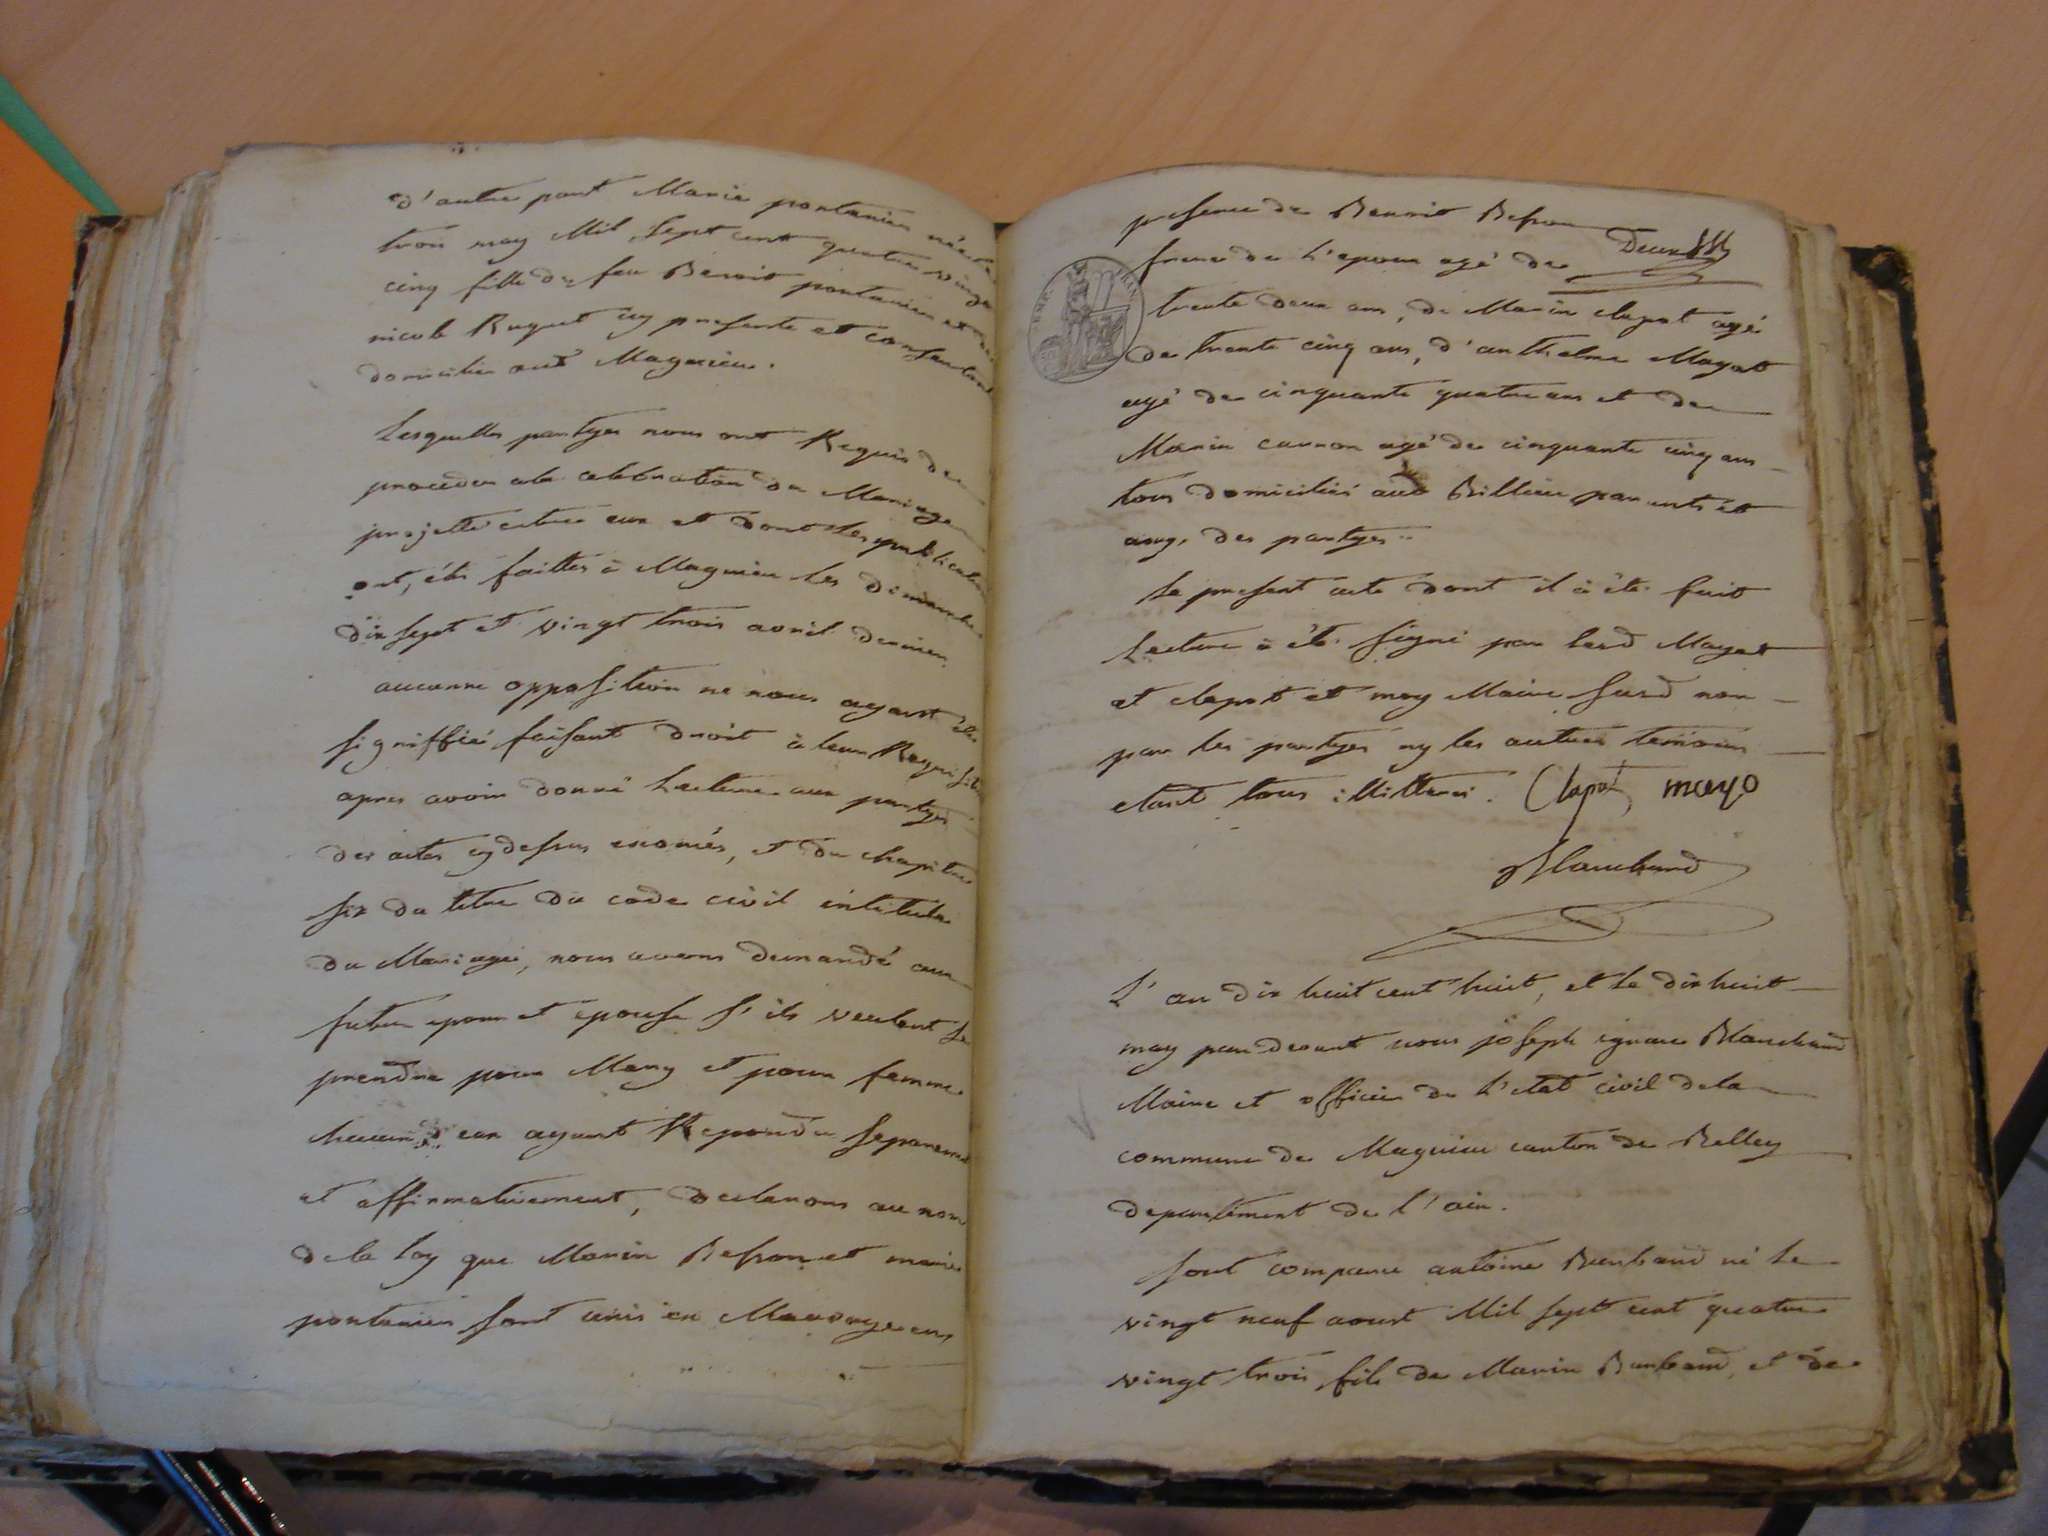 d'autre part Marie pontanier née le
trois may Mil sept cent quatre vingt
cinq fille de feu Benoit pontanier et de
nicole Ruguet icy presente et consentant
domiciliés aud Magnieu.
Lesquelles partyes nous ont Requis de
proceder a la celebration du Mariage
projetté entre eux et dont les publications
ont étés faittes à Magnieu les dimanches
dix sept et vingt trois avril dernier
aucunne opposition ne nous ayant été
signiffié faisant droit à leur Requisition
apres avoir donné Lecture aux partyes
des actes cy dessus enoncés, et du chapitre
six du titre du code civil intitulé
du Mariage, nous avons demandé aux
futur epoux et epouse s'ils veulent se
prendre pour Mary et pour femme
chacun d'eux ayant Repondu separement
et affirmativement, declarons au nom
de la loy que Marin Besson et marie
pontanier sont unis en Mariage en
presence de Benoit Besson
frere de l'epoux agé de
trente deux ans, de Marin clapot agé
de trente cinq ans, d'anthelme Mayot
agé de cinquante quatre ans et de
Marin carron agé de cinquante cinq ans
tous domiciliés aud Billieu parents et
amys des partyes
Le present acte dont il à été fait
Lecture à été signé par lesd Mayot
et clapot et moy Maire susd non
par les partyes ny les autres temoins
etant tous illitterés. Clapot mayo
Blanchard
L'an dix huit cent huit, et le dix huit
may par devant nous joseph ignace Blanchard
Maire et officier de l'etat civil de la
commune de Magnieu canton de Belley
departement de l'ain.
sont comparus antoine Burband né le
vingt neuf aoust Mil sept cent quatre
vingt trois fils de Marin Burband, et de